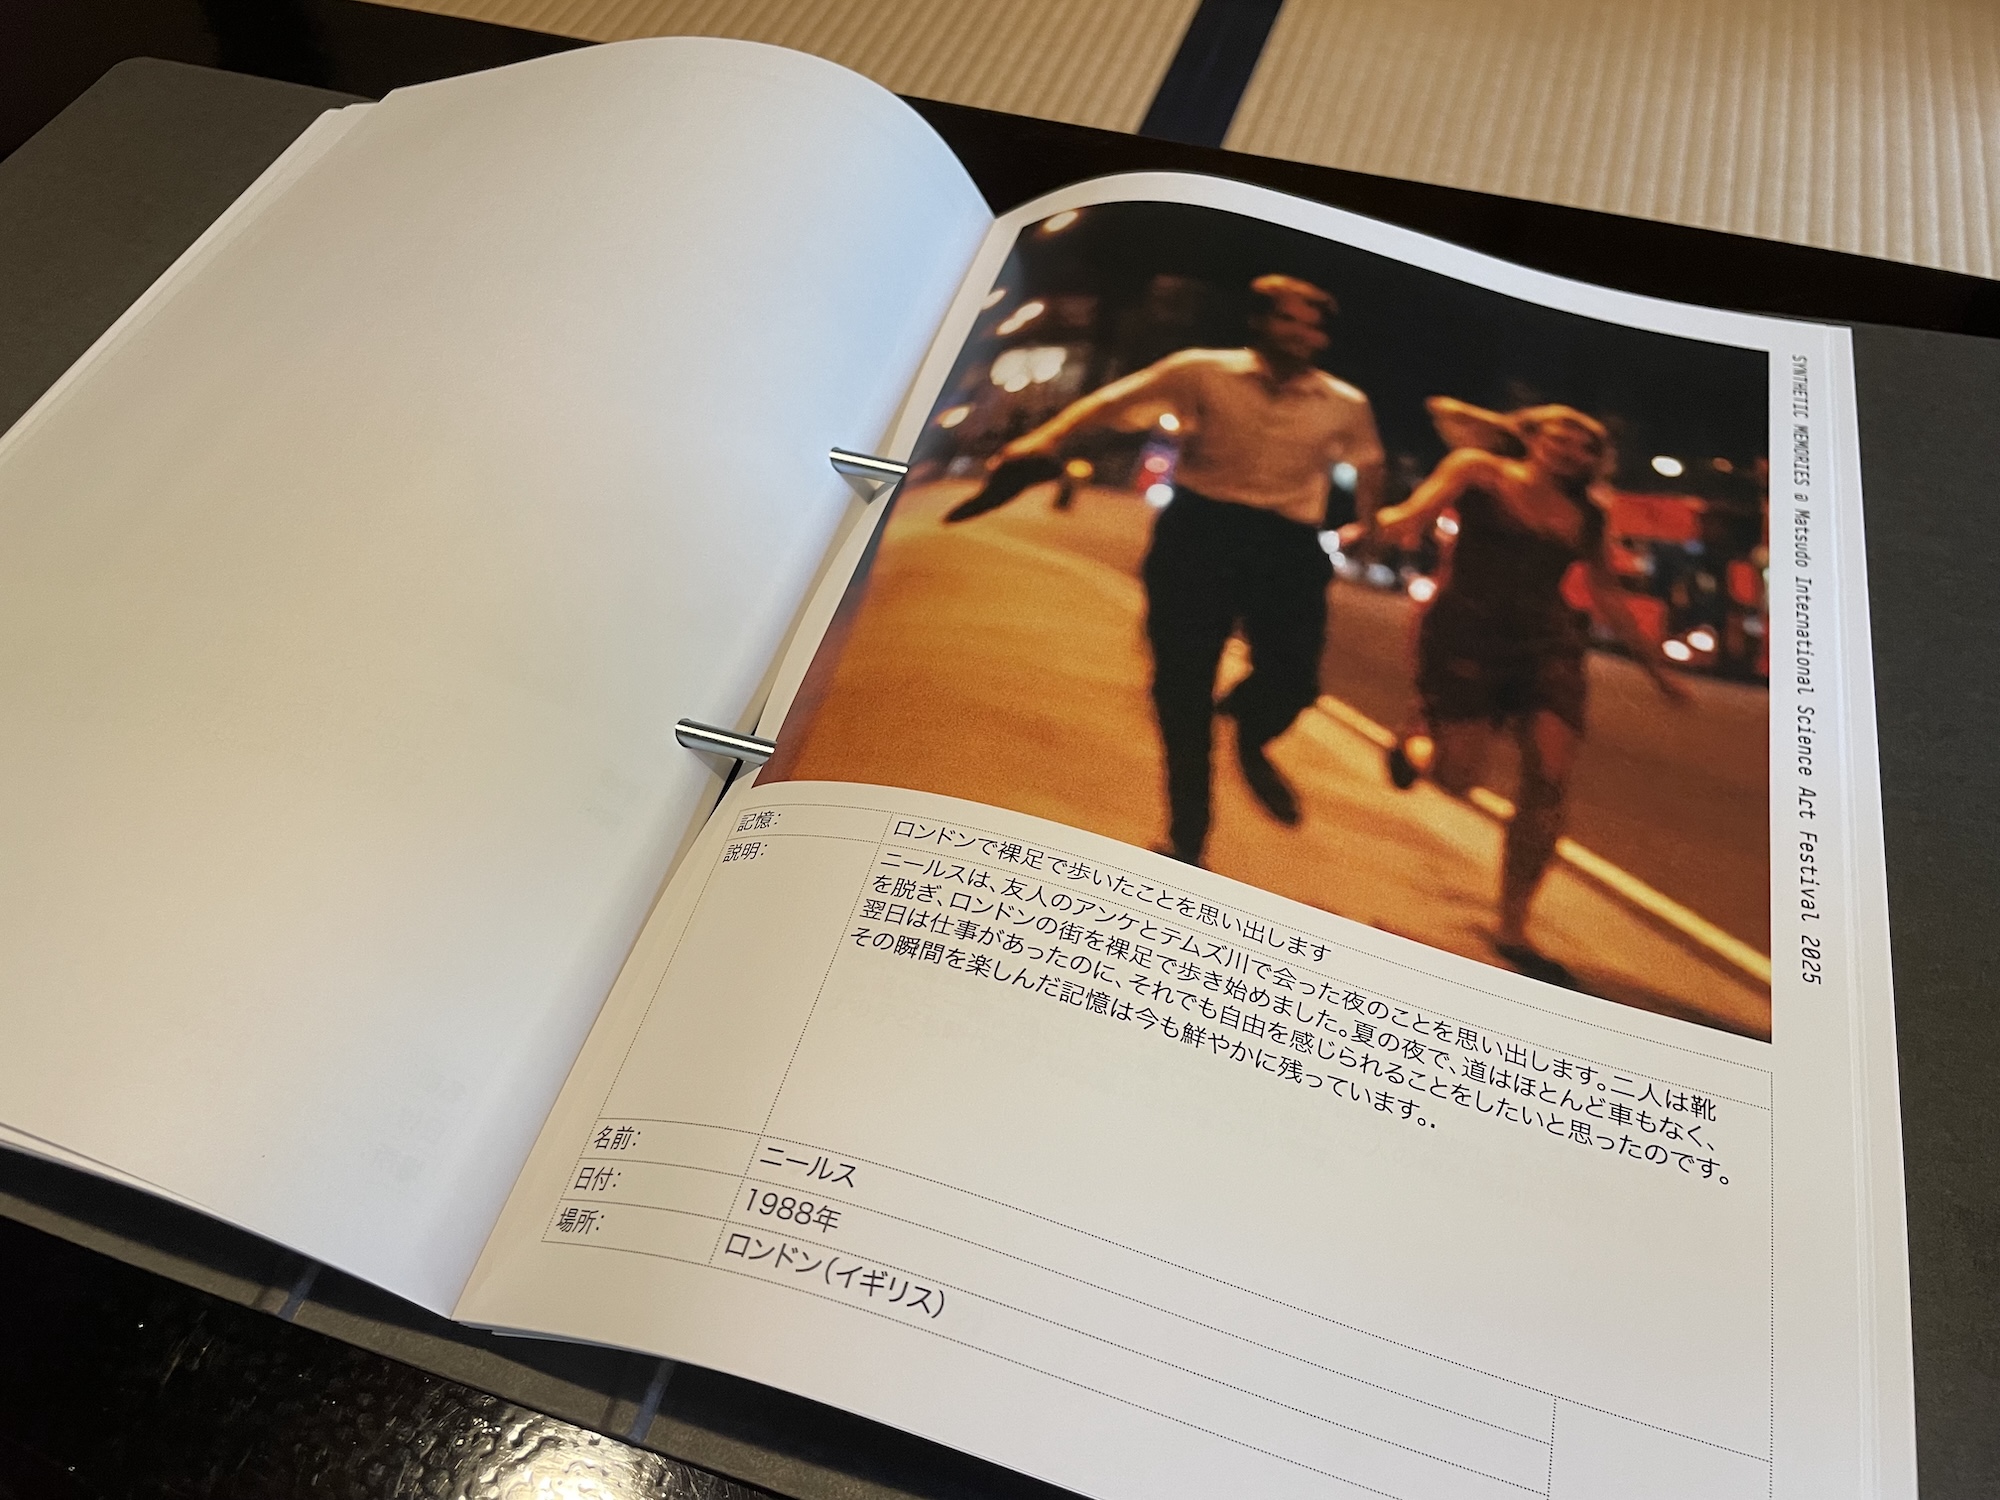 SYNTHETIC MEMORIES @ Matsudo International Science Art Festival 2025
記憶:
ロンドンで裸足で歩いたことを思い出します
説明:
ニールスは、友人のアンケとテムズ川で会った夜のことを思い出します。二人は靴
を脱ぎ、ロンドンの街を裸足で歩き始めました。夏の夜で、道はほとんど車もなく、
翌日は仕事があったのに、それでも自由を感じられることをしたいと思ったのです。
その瞬間を楽しんだ記憶は今も鮮やかに残っています。.
名前:
ニールス
日付:
1988年
場所:
ロンドン(イギリス)